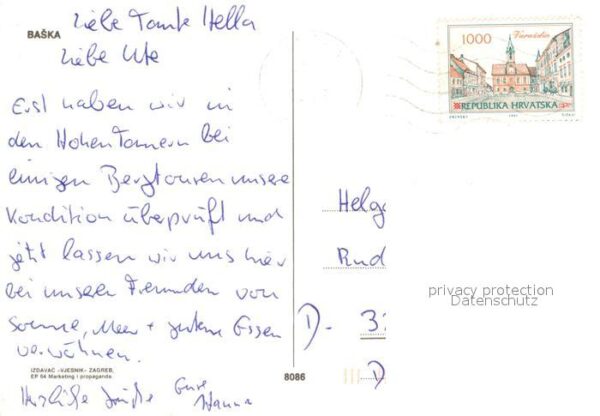 BAŠKA
Liebe Tante Hella
Liebe Ute
Erst haben wir in
den Hohen Tauern bei
einigen Bergtouren unsere
Kondition überprüft und
jetzt lassen wir uns hier
bei unseren Freunden von
Sonne, Meer + gutem Essen
verwöhnen.
Herzliche Grüße Eure
Hanna
IZDAVAČ «VJESNIK» ZAGREB,
EP 64 Marketing i propaganda
8086
1000
Varaždin
REPUBLIKA HRVATSKA
Helga
Rud
D- 3
D
privacy protection
Datenschutz